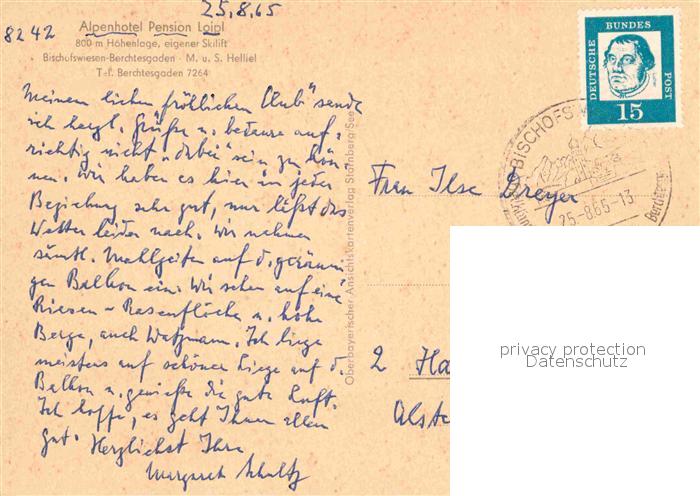 25.8.65
8242
Alpenhotel Pension Loipl
800 m Höhenlage, eigener Skilift
Bischofswiesen-Berchtesgaden · M. u. S. Helliel
Tel. Berchtesgaden 7264
Meinem lieben fröhlichen Club sende
ich herzl. Grüße u. bedaure auf-
richtig nicht „dabei" sein zu kön-
nen. Wir haben es hier in jeder
Beziehung sehr gut, nur läßt das
Wetter leider nach. Wir nehmen
sämtl. Mahlzeiten auf d. geräumi-
gen Balkon ein. Wir sehen auf eine
Riesen-Rasenfläche u. hohe
Berge, auch Watzmann. Ich liege
meistens auf schöner Liege auf d.
Balkon u. genieße die gute Luft.
Ich hoffe, es geht Ihnen allen
gut. Herzlichst Ihre
Margaret Schultz
Oberbayerischer Ansichtskartenverlag Starnberg-See
DEUTSCHE BUNDES POST
15
BISCHOFSW
25.-8.65-13
Frau Ilse Dreyer
2 Ha
Alste
privacy protection
Datenschutz